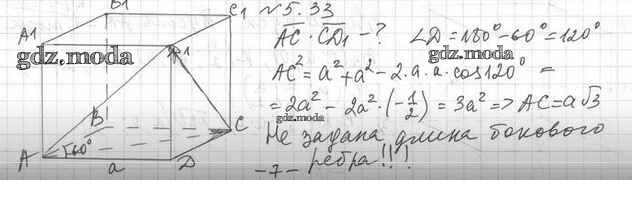 N5.33
B1
C1
A1
D1
AC · CD1 - ? ∠D = 180° - 60° = 120°
gdz.moda
gdz.moda
AC² = a² + a² - 2·a·a·cos120° =
= 2a² - 2a²·(-1/2) = 3a² => AC = a√3
gdz.moda
B
C
Не задана длина бокового
ребра!!!
A
60°
a
D
-7-